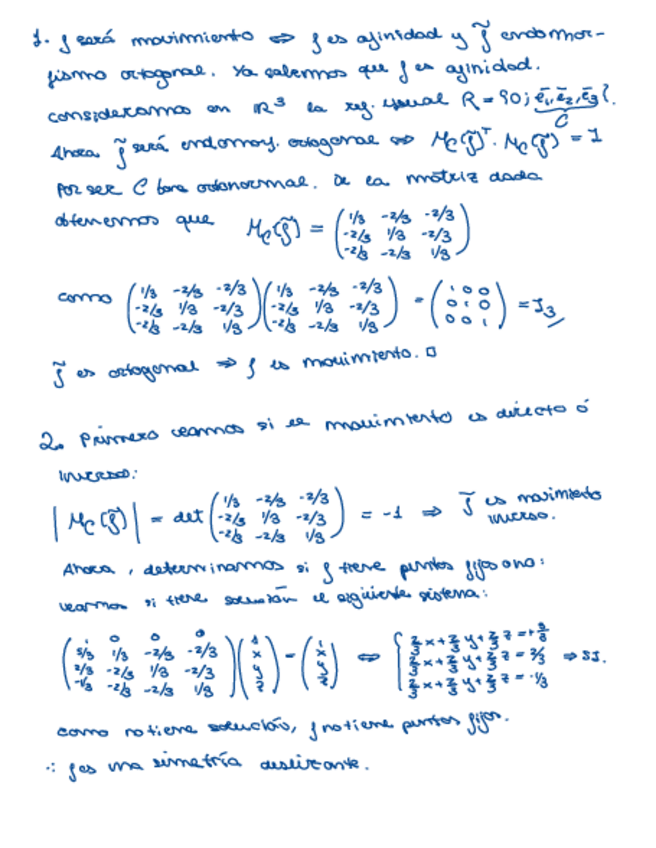 1. f será movimiento ⇔ f es afinidad y f̃ endomor-
fismo ortogonal. Ya sabemos que f es afinidad.
consideramos en ℝ³ la ref. usual R = {O; ē₁, ē₂, ē₃}.
C
Ahora f̃ será endomorf. ortogonal ⇔ M_C(f̃)ᵀ. M_C(f̃) = I
Por ser C base ortonormal. De la matriz dada
obtenemos que M_C(f̃) = ( 1/3 -2/3 -2/3 ; -2/3 1/3 -2/3 ; -2/3 -2/3 1/3 )
como ( 1/3 -2/3 -2/3 ; -2/3 1/3 -2/3 ; -2/3 -2/3 1/3 ) ( 1/3 -2/3 -2/3 ; -2/3 1/3 -2/3 ; -2/3 -2/3 1/3 ) = ( 1 0 0 ; 0 1 0 ; 0 0 1 ) = I₃
f̃ es ortogonal ⇒ f es movimiento. □
2. Primero veamos si el movimiento es directo ó
inverso:
| M_C(f̃) | = det ( 1/3 -2/3 -2/3 ; -2/3 1/3 -2/3 ; -2/3 -2/3 1/3 ) = -1 ⇒ f̃ es movimiento
inverso.
Ahora, determinamos si f tiene puntos fijos o no:
veamos si tiene solución el siguiente sistema:
( 1 0 0 0 ; 5/3 1/3 -2/3 -2/3 ; 2/3 -2/3 1/3 -2/3 ; -1/3 -2/3 -2/3 1/3 ) ( 1 ; x ; y ; z ) = ( 1 ; x ; y ; z ) ⇔ { 2/3 x + 2/3 y + 2/3 z = 5/3 ; 2/3 x + 2/3 y + 2/3 z = 2/3 ; 2/3 x + 2/3 y + 2/3 z = -1/3 ⇒ SI.
como no tiene solución, f no tiene puntos fijos.
∴ f es una simetría deslizante.